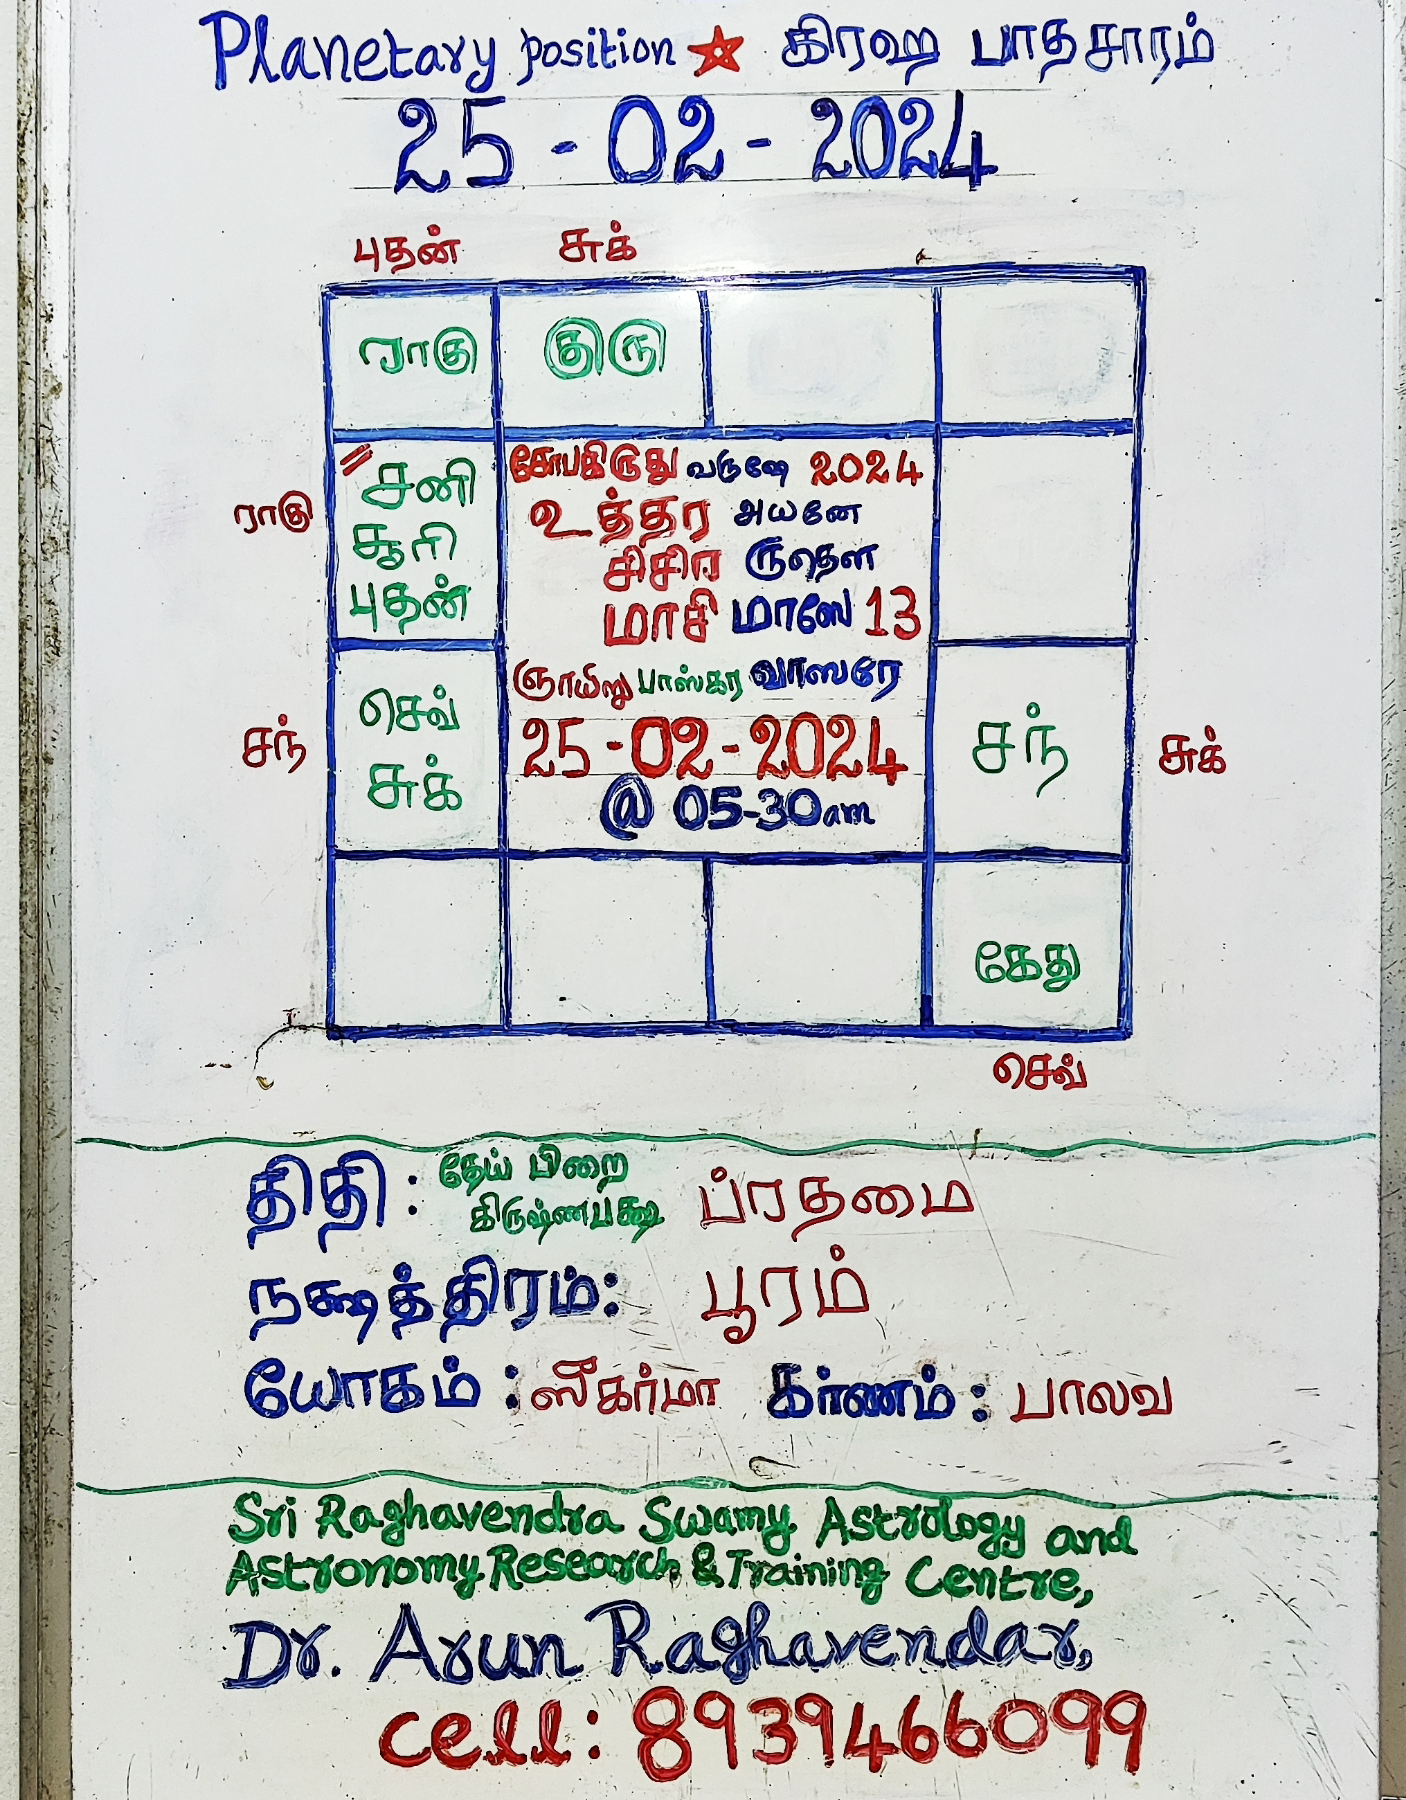 Planetary position ★ கிரஹ பாதசாரம்
25 - 02 - 2024
புதன் சுக்
ராகு குரு
ராகு
சனி
சூரி
புதன்
கோபகிருது வருஷே 2024
உத்தர அயனே
சிசிர ருதௌ
மாசி மாஸே 13
ஞாயிறு பாஸ்கர வாஸரே
25-02-2024
@ 05-30am
சந்
செவ்
சுக்
சந்
சுக்
கேது
செவ்
திதி : தேய் பிறை
கிருஷ்ணபக்ஷ ப்ரதமை
நக்ஷத்திரம்: பூரம்
யோகம் : ஸீகர்மா கர்ணம் : பாலவ
Sri Raghavendra Swamy Astrology and
Astronomy Research & Training Centre,
Dr. Arun Raghavendar,
cell: 8939466099